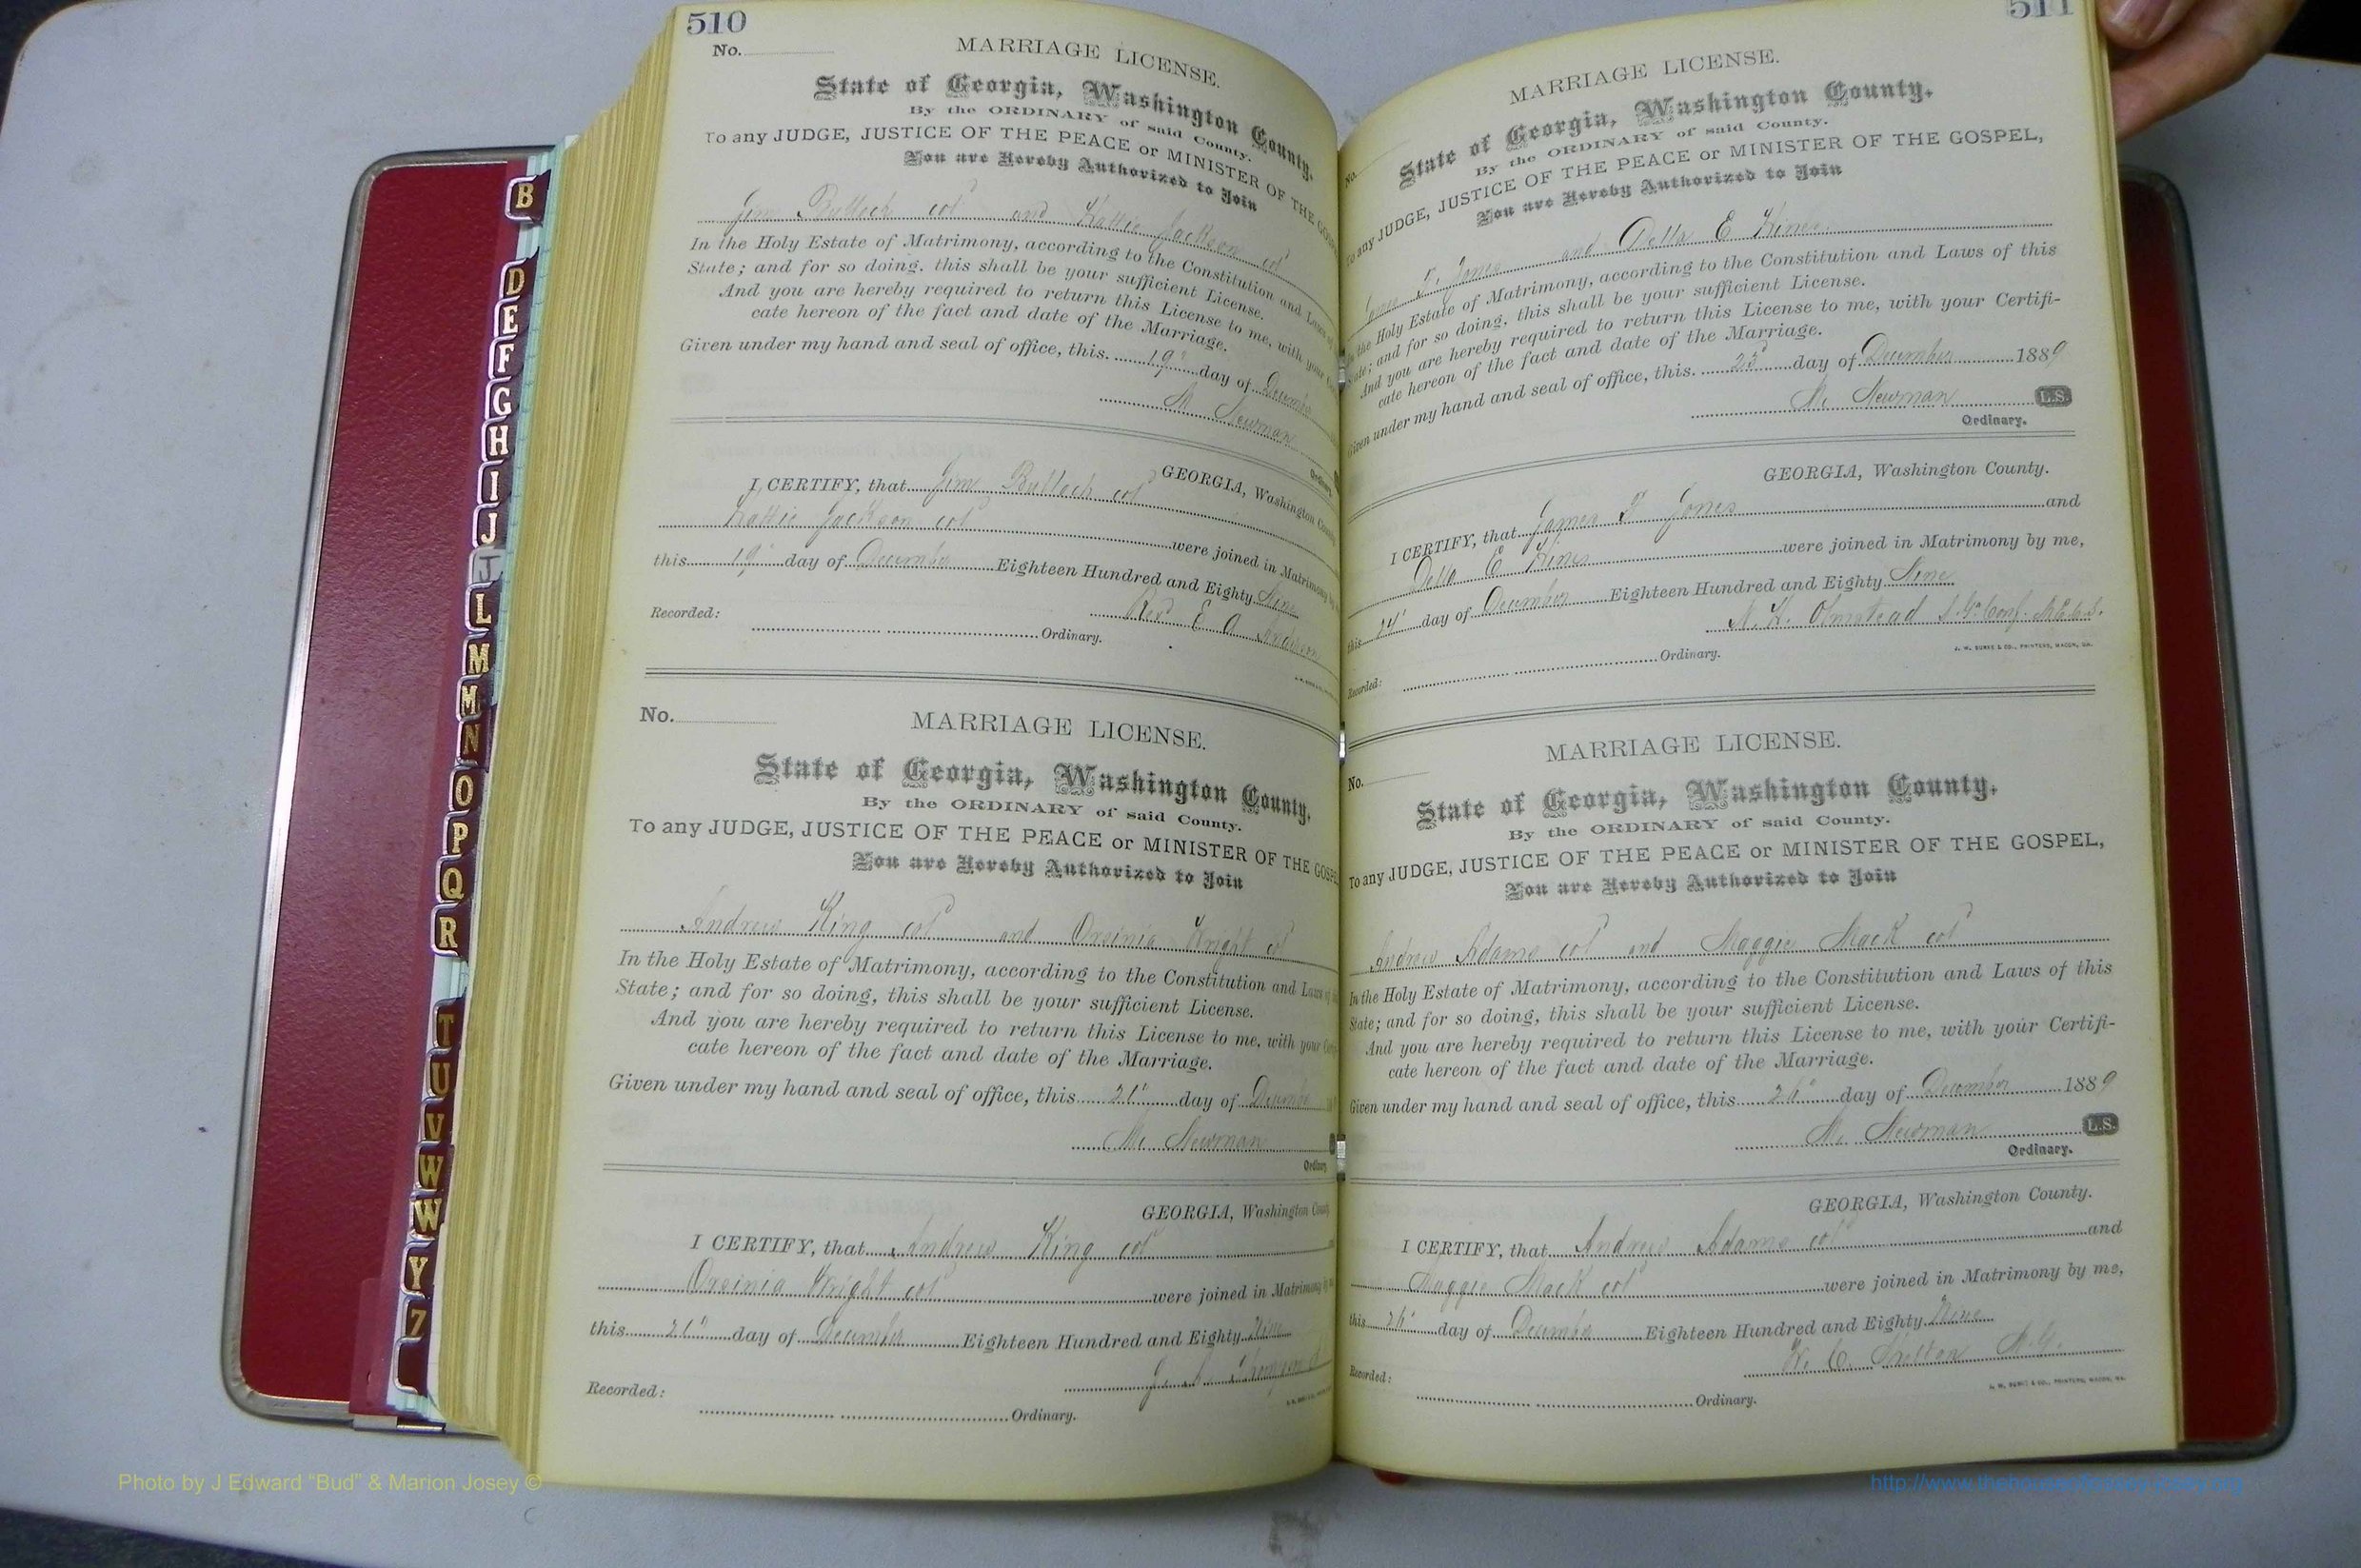 510
No.
MARRIAGE LICENSE.
State of Georgia, Washington County.
By the ORDINARY of said County.
To any JUDGE, JUSTICE OF THE PEACE or MINISTER OF THE GOSPEL
You are Hereby Authorized to Join
Jim Bulloch col and Hattie Jackson col
In the Holy Estate of Matrimony, according to the Constitution and Laws
State; and for so doing, this shall be your sufficient License.
And you are hereby required to return this License to me, with your
cate hereon of the fact and date of the Marriage.
Given under my hand and seal of office, this 19 day of December
M. Newman
Ordinary.
GEORGIA, Washington County
I CERTIFY, that Jim Bulloch col
Hattie Jackson col were joined in Matrimony
this 19 day of December Eighteen Hundred and Eighty Nine
Rev E A
Recorded:
Ordinary.
No.
MARRIAGE LICENSE.
State of Georgia, Washington County.
By the ORDINARY of said County.
To any JUDGE, JUSTICE OF THE PEACE or MINISTER OF THE GOSPEL
You are Hereby Authorized to Join
Andrew King col and Orsinia Wright col
In the Holy Estate of Matrimony, according to the Constitution and Laws of
State; and for so doing, this shall be your sufficient License.
And you are hereby required to return this License to me, with your
cate hereon of the fact and date of the Marriage.
Given under my hand and seal of office, this 21 day of December
M. Newman
Ordinary
GEORGIA, Washington County
I CERTIFY, that Andrew King col
Orsinia Wright col were joined in Matrimony by
this 21 day of December Eighteen Hundred and Eighty Nine
Recorded:
Ordinary.
511
No.
MARRIAGE LICENSE.
State of Georgia, Washington County.
By the ORDINARY of said County.
To any JUDGE, JUSTICE OF THE PEACE or MINISTER OF THE GOSPEL,
You are Hereby Authorized to Join
James F. Jones and Della E Hines
In the Holy Estate of Matrimony, according to the Constitution and Laws of this
State; and for so doing, this shall be your sufficient License.
And you are hereby required to return this License to me, with your Certifi-
cate hereon of the fact and date of the Marriage.
Given under my hand and seal of office, this 23 day of December 1889
M. Newman L.S.
Ordinary.
GEORGIA, Washington County.
I CERTIFY, that James F Jones and
Della E Hines were joined in Matrimony by me,
this 24 day of December Eighteen Hundred and Eighty Nine
Olmstead
J. W. BURKE & CO., PRINTERS, MACON, GA.
Recorded: Ordinary.
MARRIAGE LICENSE.
No.
State of Georgia, Washington County.
By the ORDINARY of said County.
To any JUDGE, JUSTICE OF THE PEACE or MINISTER OF THE GOSPEL,
You are Hereby Authorized to Join
Andrew Adams col and Maggie Mack col
In the Holy Estate of Matrimony, according to the Constitution and Laws of this
State; and for so doing, this shall be your sufficient License.
And you are hereby required to return this License to me, with your Certifi-
cate hereon of the fact and date of the Marriage.
Given under my hand and seal of office, this 26 day of December 1889
M. Newman L.S.
Ordinary.
GEORGIA, Washington County.
I CERTIFY, that Andrew Adams col and
Maggie Mack col were joined in Matrimony by me,
this 26 day of December Eighteen Hundred and Eighty Nine
M.G.
J. W. BURKE & CO., PRINTERS, MACON, GA.
Recorded:
Ordinary.
B
D
E
F
G
H
I
J
J
L
M
M
N
O
P
Q
R
T
U
V
W
W
Y
Z
Photo by J Edward “Bud” & Marion Josey ©